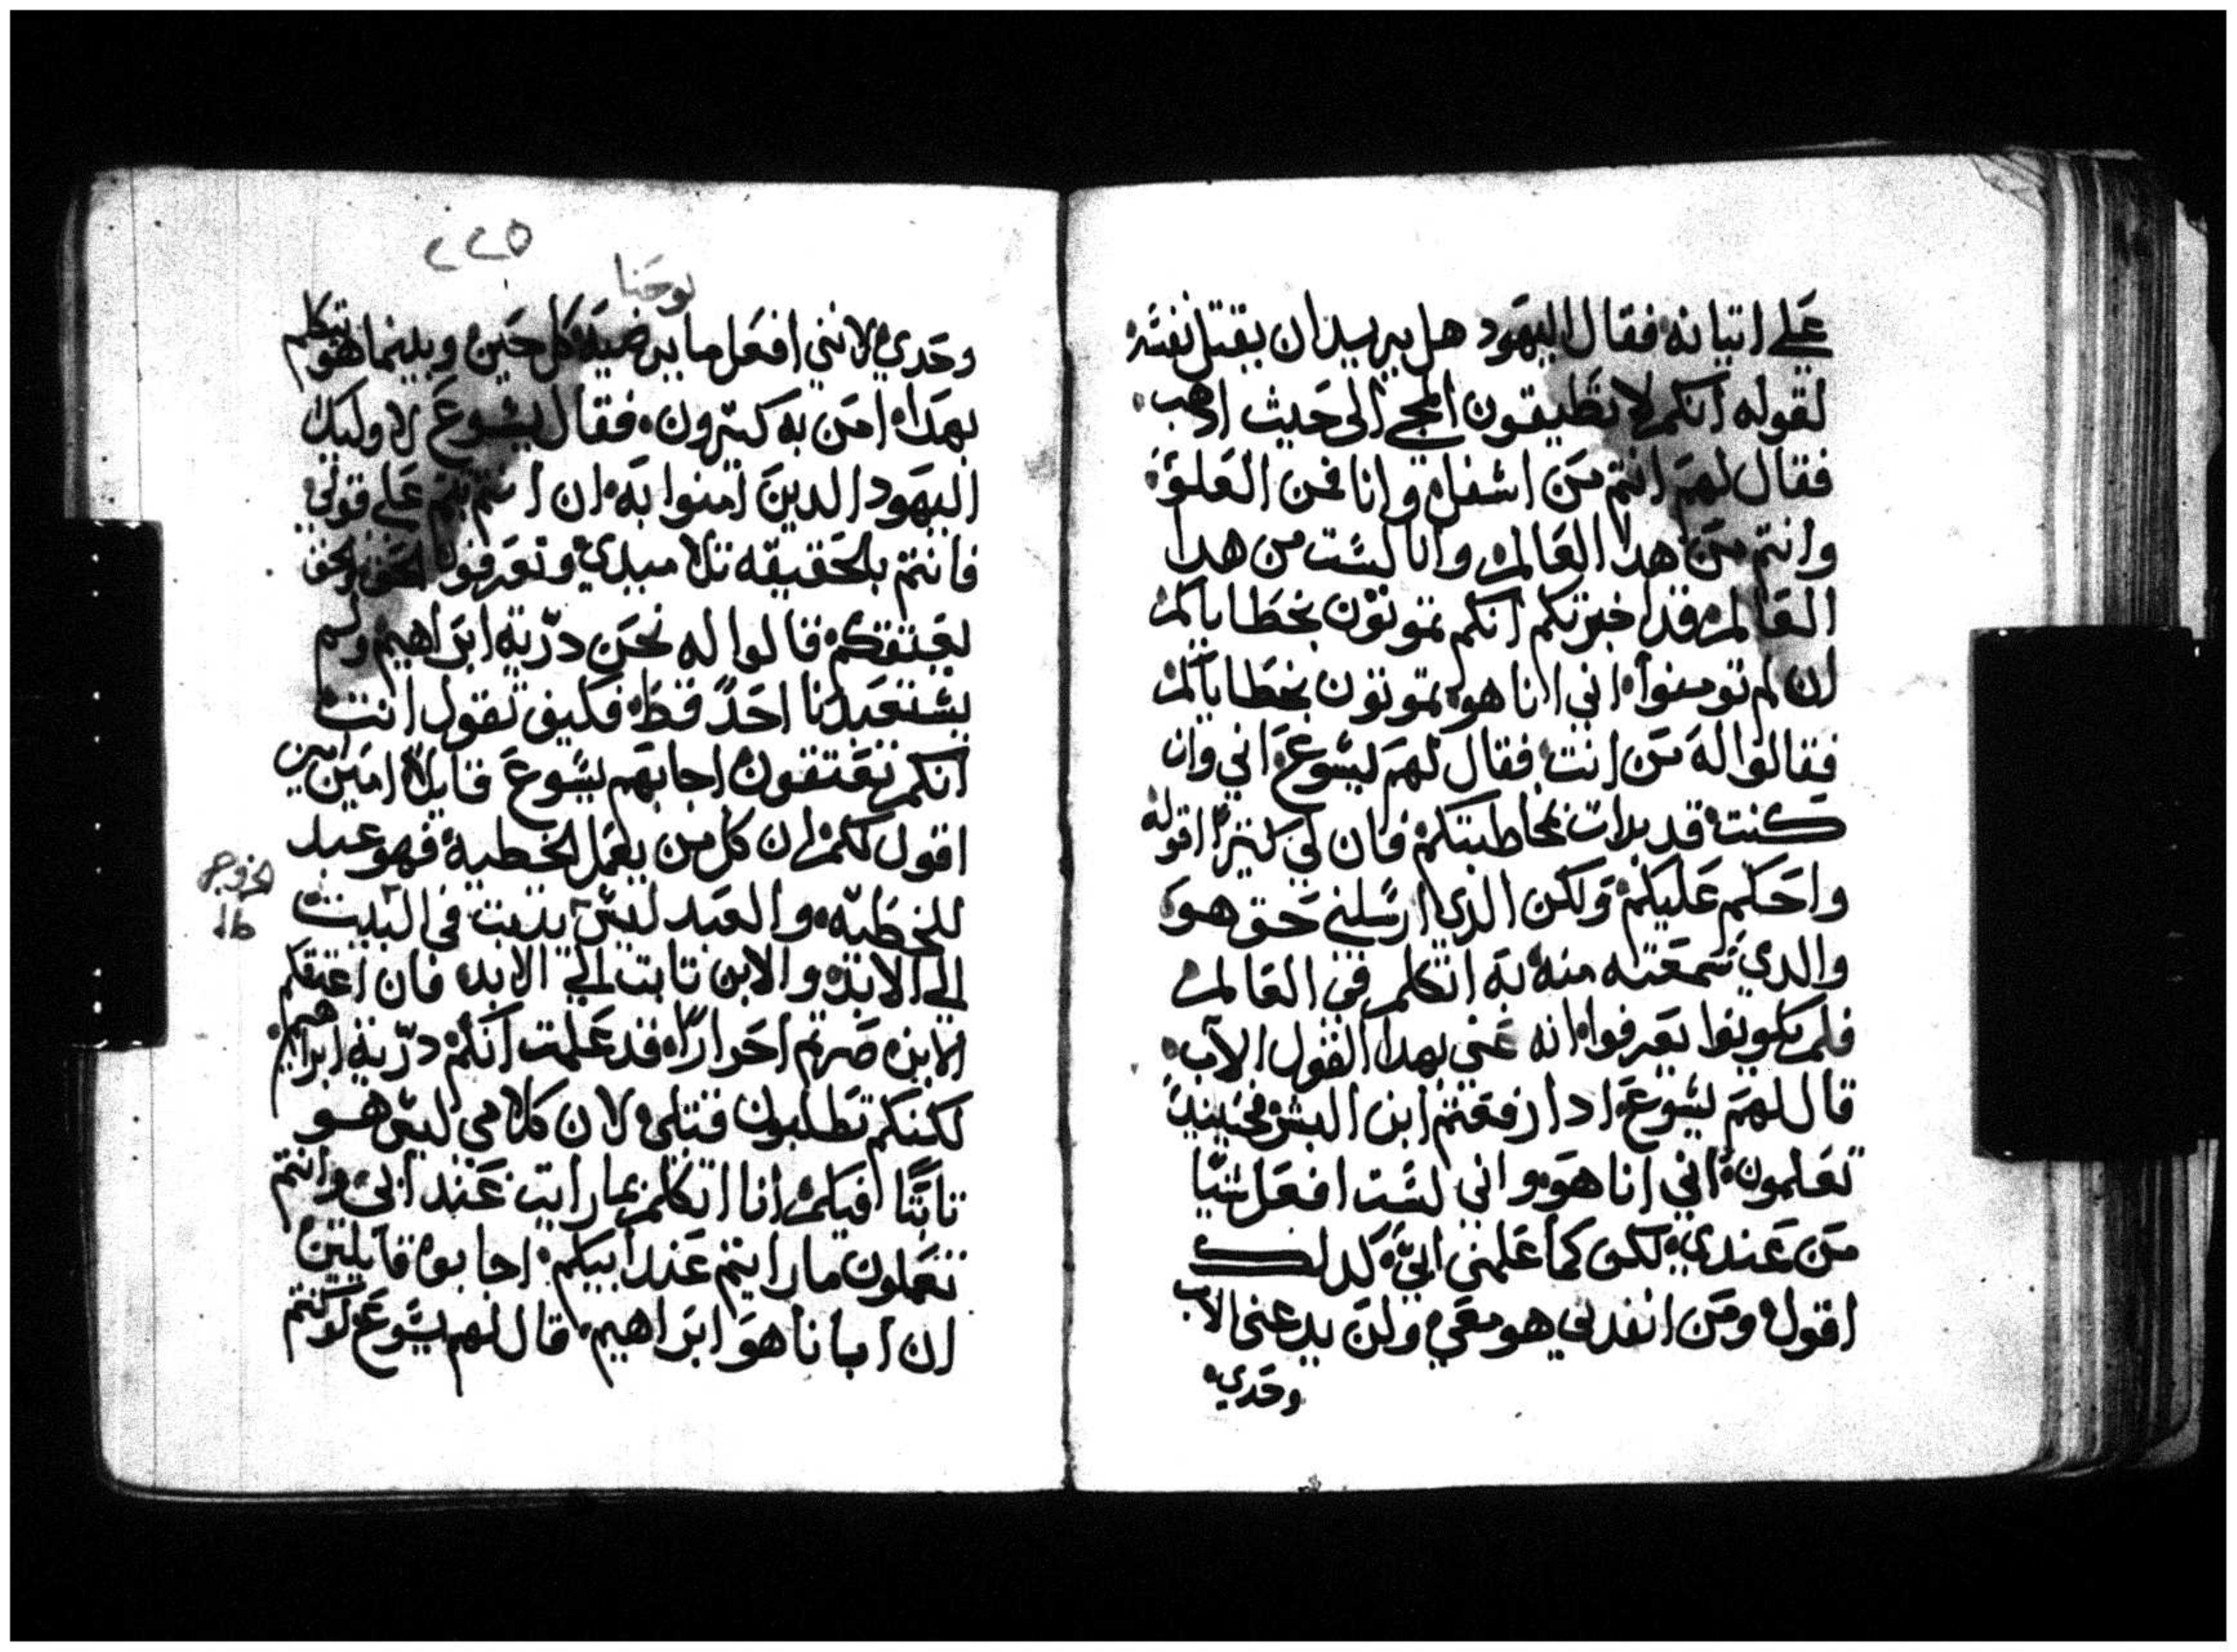 علي اتيانه فقال اليهود هل يريد ان يقتل نفسه
لقوله انكم لا تطيقون المجي الى حيث اذهب
فقال لهم انتم من اسفل وانا فمن العلو
وانتم من هدا العالم وانا لست من هدا
العالم قد اخبرتكم انكم تموتون بخطاياكم
ان لم تومنوا اني انا هو تموتون بخطاياكم
فقالوا له من انت فقال لهم يسوع اني وان
كنت قد بدات بمخاطبتكم فان لي كثيرا اقوله
واحكم عليكم ولكن الدي ارسلني حق هو
والدي سمعته منه به اتكلم في العالم
فلم يكونوا يعرفوا انه عنى بهدا القول الآب
قال لهم يسوع ادا رفعتم ابن البشر فحينيد
تعلمون اني انا هو واني لست افعل شيا
من عندي لكن كما علمني ابي كدلك
اقول ومن انفدني هو معي ولن يدعني الاب
وحدي
٢٢٥
يوحنا
وحدي لانني افعل ما يرضيه كل حين وبينما هو يتكلم
بهدا امن به كثيرون فقال يسوع لاوليك
اليهود الدين امنوا به ان انتم ثبتم على قولي
فانتم بالحقيقه تلاميدي وتعرفوا الحق والحق
يعتقكم قالوا له نحن درّية ابراهيم ولم
يستعبدنا احدً قط فكيف تقول انت
انكم تعتقون اجابهم يسوع قايلا امين امين
اقول لكم ان كل من يعمل الخطية فهو عبد
للخطيّه والعبد ليس يثبت في البيت
الي الابد والابن ثابت الي الابد فان اعتقكم
الابن صرتم احرارًا قد علمت انكم درّية ابراهيم
لكنكم تطلبون قتلي لان كلامي ليس هو
ثابتًا فيكم انا اتكلم بما رايت عند ابي وانتم
تعملون ما رايتم عند ابيكم اجابوه قايلين
ان ابانا هو ابراهيم قال لهم يسوع لو كنتم
الخروج